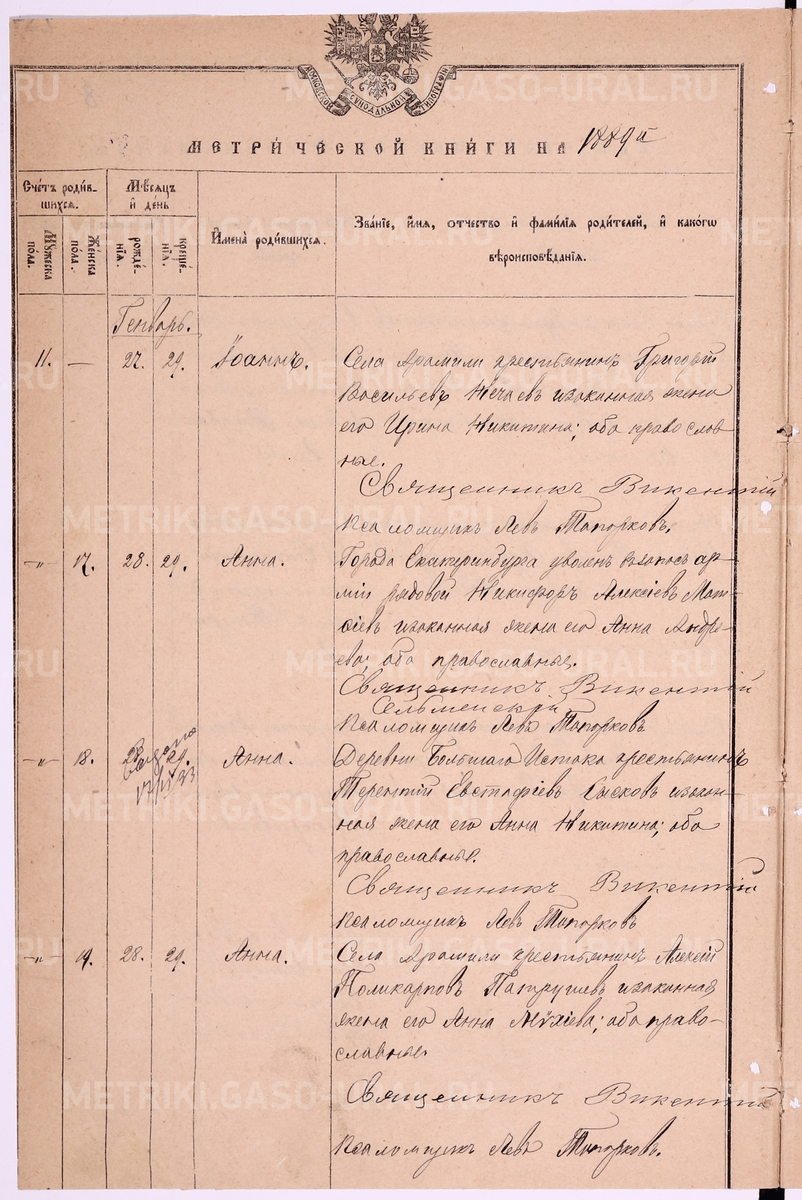 МОСКОВСКОЙ СѴНОДАЛЬНОЙ ТИПОГРАФІИ
МЕТРИ́ЧЕСКОЙ КНИ́ГИ НА 1889 й
Сче́тъ роди́вшихся.
Мѣ́сяцъ и҆ де́нь
И҆мена̀ роди́вшихся.
Зва́ніе, и҆́мя, ѻ҆́тчество и҆ фами́лія роди́телей, и҆ како́гѡ вѣроисповѣ́данія.
Мꙋ́жеска по́ла.
Же́нска по́ла.
рожде́нїѧ.
креще́нїѧ.
Генварь.
11. — 27. 29. Іоаннъ. Села Арамили крестьянинъ Григорій
Васильевъ Нечаевъ изаконная жена
его Ирина Никитина; оба православ
ные.
Священникъ Викентій
Псаломщикъ Левъ Топорковъ.
-"- 17. 28. 29. Анна. Города Екатеринбурга уволен взапасъ ар-
міи рядовой Никифоръ Алексіевъ Мат-
ѳіевъ изаконная жена его Анна Андре-
ева; оба православные.
Священникъ Викентій
Сельменскій
Псаломщикъ Левъ Топорковъ
-"- 18. 28. 29. Анна. Деревни Большаго Истока крестьянинъ
Терентій Евстафіевъ изакон-
ная жена его Анна Никитина; оба
православные.
Священникъ Викентій
Псаломщикъ Левъ Топорковъ
-"- 19. 28. 29. Анна. Села Арамили крестьянинъ Алексій
Поликарповъ Патрушевъ изаконная
жена его Анна; оба право-
славные.
Священникъ Викентій
Псаломщикъ Левъ Топорковъ.
METRIKI.GASO-URAL.RU